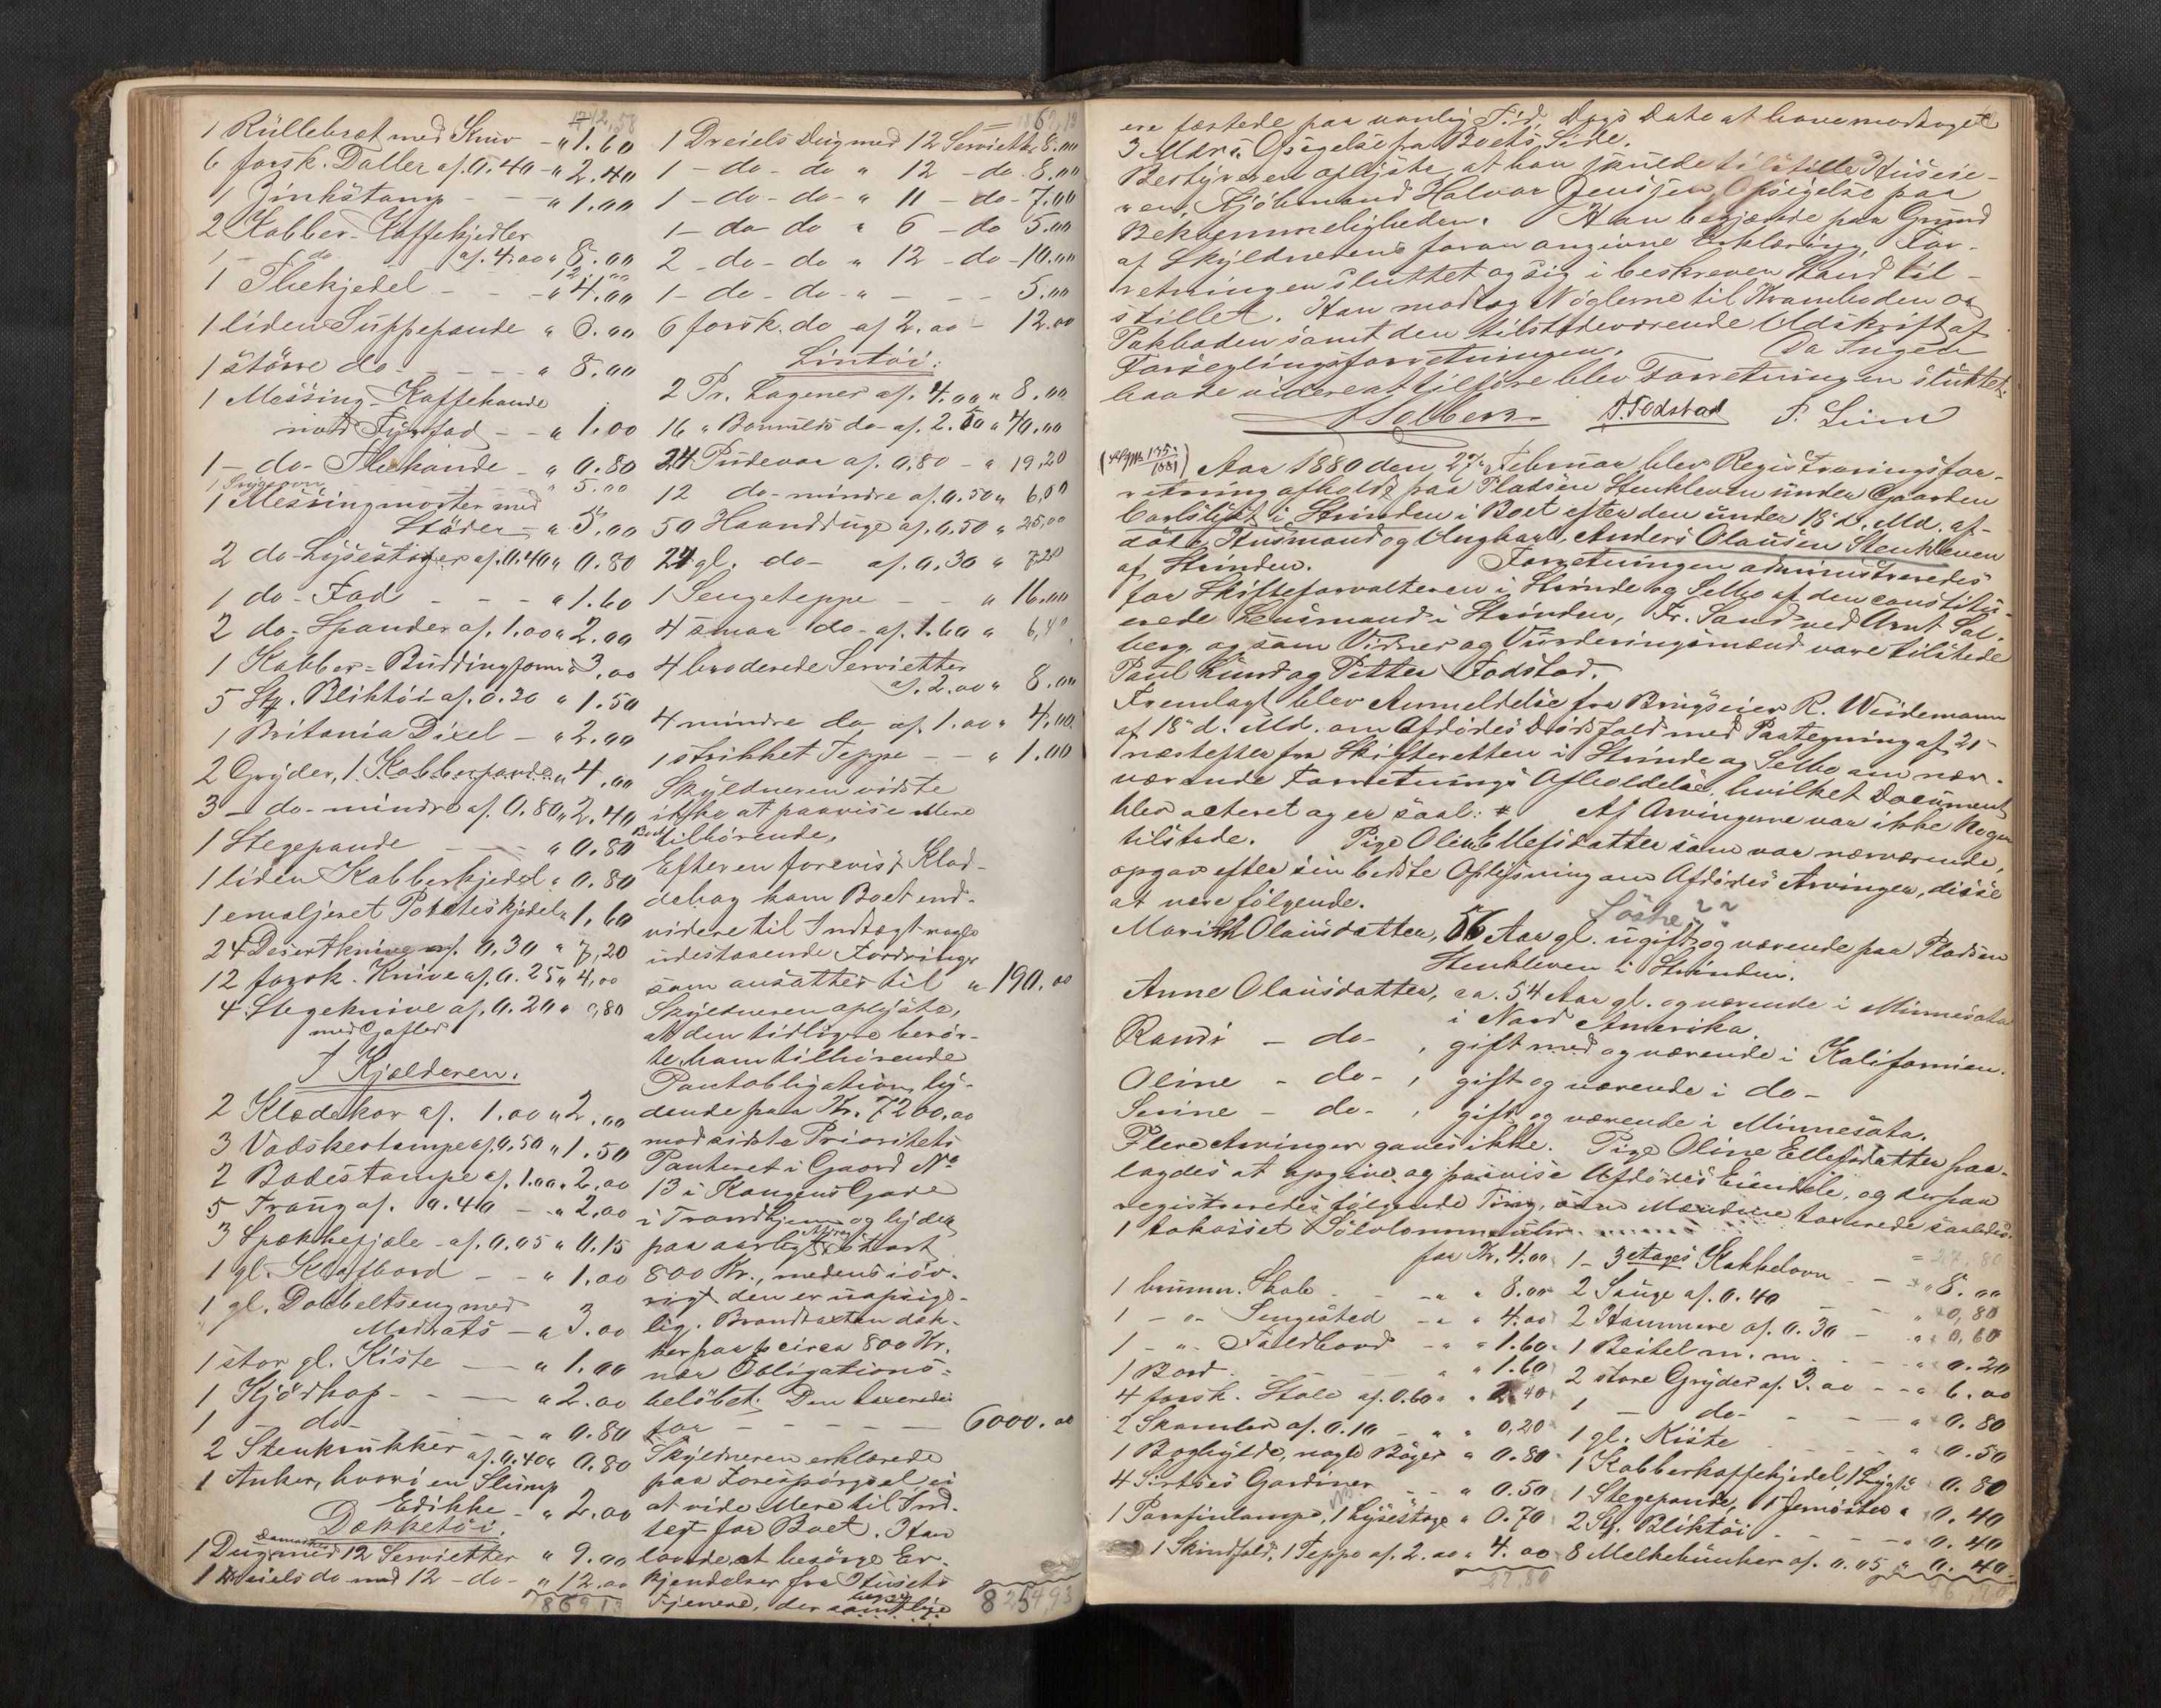 1712,58
1 Rüllebræt med Kniv - " 1.60
6 forsk. Daller af. 0.40 - " 2.40
1 Zinkstamp - - " 1.00
2 Kobber-Kaffekjedler
af. 4.00 " 8.00
1 - do 12.00
1 Thekjedel - - - " 4.00
1 liden Suppepande " 6.00
1 större do - - - - " 8.00
1 Messing-Kaffekande
med Fyrfad - - " 1.00
1 - do - Thekande - " 0.80
1 Messingmorter med " 5.00
Stöder - " 3.00
2 do-Lysestager af. 0.40 " 0.80
1 do-Fad - - - " 1.60
2 do-Spander af. 1.00 " 2.00
1 Kobber-Buddingform " 3.00
5 Stk. Bliktöi af. 0.30 " 1.50
1 Britania Dixel - " 2.00
2 Gryder, 1 Kobberpande " 4.00
3 - do - mindre af. 0.80 " 2.40
1 Stegepande - - " 0.80
1 liden Kobberkjedel " 0.80
1 emaljeret Poteteskjedel " 1.60
24 Desertknive af. 0.30 " 7,20
12 forsk. Knive af. 0.25 " 4,00
4 Stegeknive af. 0.20 " 0,80
med Gafler
I Kjælderen.
2 Klædekar af. 1.00 " 2.00
3 Vadskestampe af. 0.50 " 1.50
2 Badestampe af. 1.00 " 2.00
5 Traug af. 0.40 - " 2.00
3 Spækkefjæle - af. 0.05 " 0.15
1 gl. Klafbord - - " 1.00
1 gl. Dobbeltseng med
Madrats - " 3.00
1 stor gl. Kiste - " 1.00
1 Kjödkop - - - " 2.00
1 - do - - - " 0.80
2 Stenkrukker af. 0.40 " 0.80
1 Anker, hvori en Slump
Edikke - " 2.00
Dækketöi.
1 Dug med 12 Servietter " 9.00
1 Dreiels do med 12 - do - " 12.00
1869.13
1869,13
1 Dreiels Dug med 12 Servietter 8.00
1 - do - do " 12 - do 8.00
1 - do - do - " 11 - do - 7.00
1 - do do " 6 - do 5.00
2 - do - do " 12 - do - 10.00
1 - do - do - " - - - 5.00
6 forsk. do af 2.00 - 12.00
Lintöi:
2 Pr. Lagener af. 4.00 " 8.00
16 " Bomulds do af. 2.50 " 40.00
24 Pudevar af. 0,80 - " 19,20
12 do - mindre af. 0.50 " 6,00
50 Haandduge af. 0,50 " 25,00
24 gl. do - af. 0,30 " 7,20
1 Sengeteppe - - " 16.00
4 smaa do - af. 1.60 " 6,40
4 broderede Servietter
af. 2.00 " 8.00
4 mindre do af. 1.00 " 4.00
1 strikket Teppe - - " 1.00
Skyldneren vidste
ikke at paavise Mere
Boet tilhörende,
Efter en forevist Klad-
debog kom Boet end-
videre til Indtægt nogle
udestaaende Fordringer
som ansattes til " 190.00
Skyldneren oplyste,
at den tidligere berör-
te, ham tilhörende
Pantobligation, ly-
dende paa Kr. 7200.00
mod sidste Prioritets
Panteret i Gaard No
13 i Kongens Gade
i Trondhjem og lyder
paa aarligt Afdrag
800 Kr., medens i öv-
rigt den er uopsige-
lig. Brandtaxten dæk-
ker paa circa 800 Kr.
nær Obligations-
belöbet. Den taxeredes
for - - - - - 6000.00
Skyldneren erklærede
paa Forespörgsel ei
at vide Mere til Ind-
tægt for Boet. Han
lovede at besörge Er-
kjendelser fra Husets
Tjenere, der samtlige
8254,93
ere fæstede paa vanlig Tid, Dags Dato at have modtaget
3 Mdrs. Opsigelse fra Boets Side.
Bestyreren oplyste, at han skulde tilstille Huseie-
ren, Kjöbmand Halvor Jenssen, Opsigelse paa
Bekvemmeligheden. Han begjærede paa Grund
af Skyldnerens foran angivne Erklæring For-
retningen sluttet og sig i beskreven Stand til-
stillet. Han modtog Nöglerne til Kramboden og
Pakboden samt den tilstedeværende Udskrift af
Forseglingsforretningen. Da Ingen
havde videre at tilföre blev Forretningen sluttet.
A Solberg P. Fodstad P. Lund
Aar 1880 den 27 Februar blev Registreringsfor-
retning afholdt paa Pladsen Stenkleven under Gaarden
Carlslyst i Strinden i Boet efter den under 18 d. Md. af-
döde Husmand og Ungkarl, Anders Olaussen Stenkleven
af Strinden. Forretningen administreredes
for Skifteforvalteren i Strinde og Selbo af den constitu-
erede Lensmand i Strinden, Fr. Sand ved Arnt Sol-
berg, og som Vidner og Vurderingsmænd vare tilstede
Paul Lund og Petter Fodstad.
Fremlagt blev Anmeldelse fra Brugseier R. Weidemann
af 18 d. Md. om Afdödes Dödsfald med Paategning af 21
næstefter fra Skifteretten i Strinde og Selbo om nær-
værende Forretnings Afholdelse, hvilket Document
blev acteret og er saal: # Af Arvingerne var ikke Nogen
tilstede. Pige Oline Ellefsdatter som var nærværende,
opgav efter sin bedste Oplysning om Afdödes Arvinger, disse
at være fölgende.
Söskende
Marith Olausdatter, 56 Aar gl. ugift og værende paa Pladsen
Stenkleven i Strinden.
Anne Olausdatter, ca. 54 Aar gl. og værende i Minnesota
i Nord Amerika.
Randi - do - , gift med og værende i Kalifornien.
Oline - do - , gift og værende i do -
Serine - do - , gift og værende i Minnesota.
Flere Arvinger gaves ikke. Pige Oline Ellefsdatter paa-
lagdes at opgive og paavise Afdödes Eiendele, og derpaa
registreredes fölgende Ting, som Mændene taxerede saaledes.
1 tokasset Sölvlommeuhr
for Kr. 4.00
1 brunm. Skab - - " 8.00
1 - " - Sengested - " 4.00
1 - " - Foldbord - " 1.60
1 Bord - - - " 1.60
4 forsk. Stole af. 0.60 " 2.40
2 Skamler af. 0.10 - " 0,20
1 Boghylde, nogle Böger " 0.80
4 Sirtses Gardiner - - " 0.50
1 Parafinlampe, 1 Lysestage " 0.70
1 Skindfeld, 1 Teppe af. 2.00 " 4.00
27.80
= 27,80
1 - 3 Etages Kakkelovn - - " 8.00
2 Sauge af. 0.40 - - " 0,80
2 Hammere af. 0.30 - " 0,60
1 Beitel m. m. - - - " 0.20
2 store Gryder af. 3.00 - - " 6.00
1 - do - - - " 0.80
1 gl. Kiste - - - " 0.50
1 Kobberkaffekjedel, 1 Lygte 0.80
1 Stegepande, 1 Jernöster " 0.40
2 St. Bliktöi - - - " 0.40
8 Melkebunker af. 0.05 " 0.40